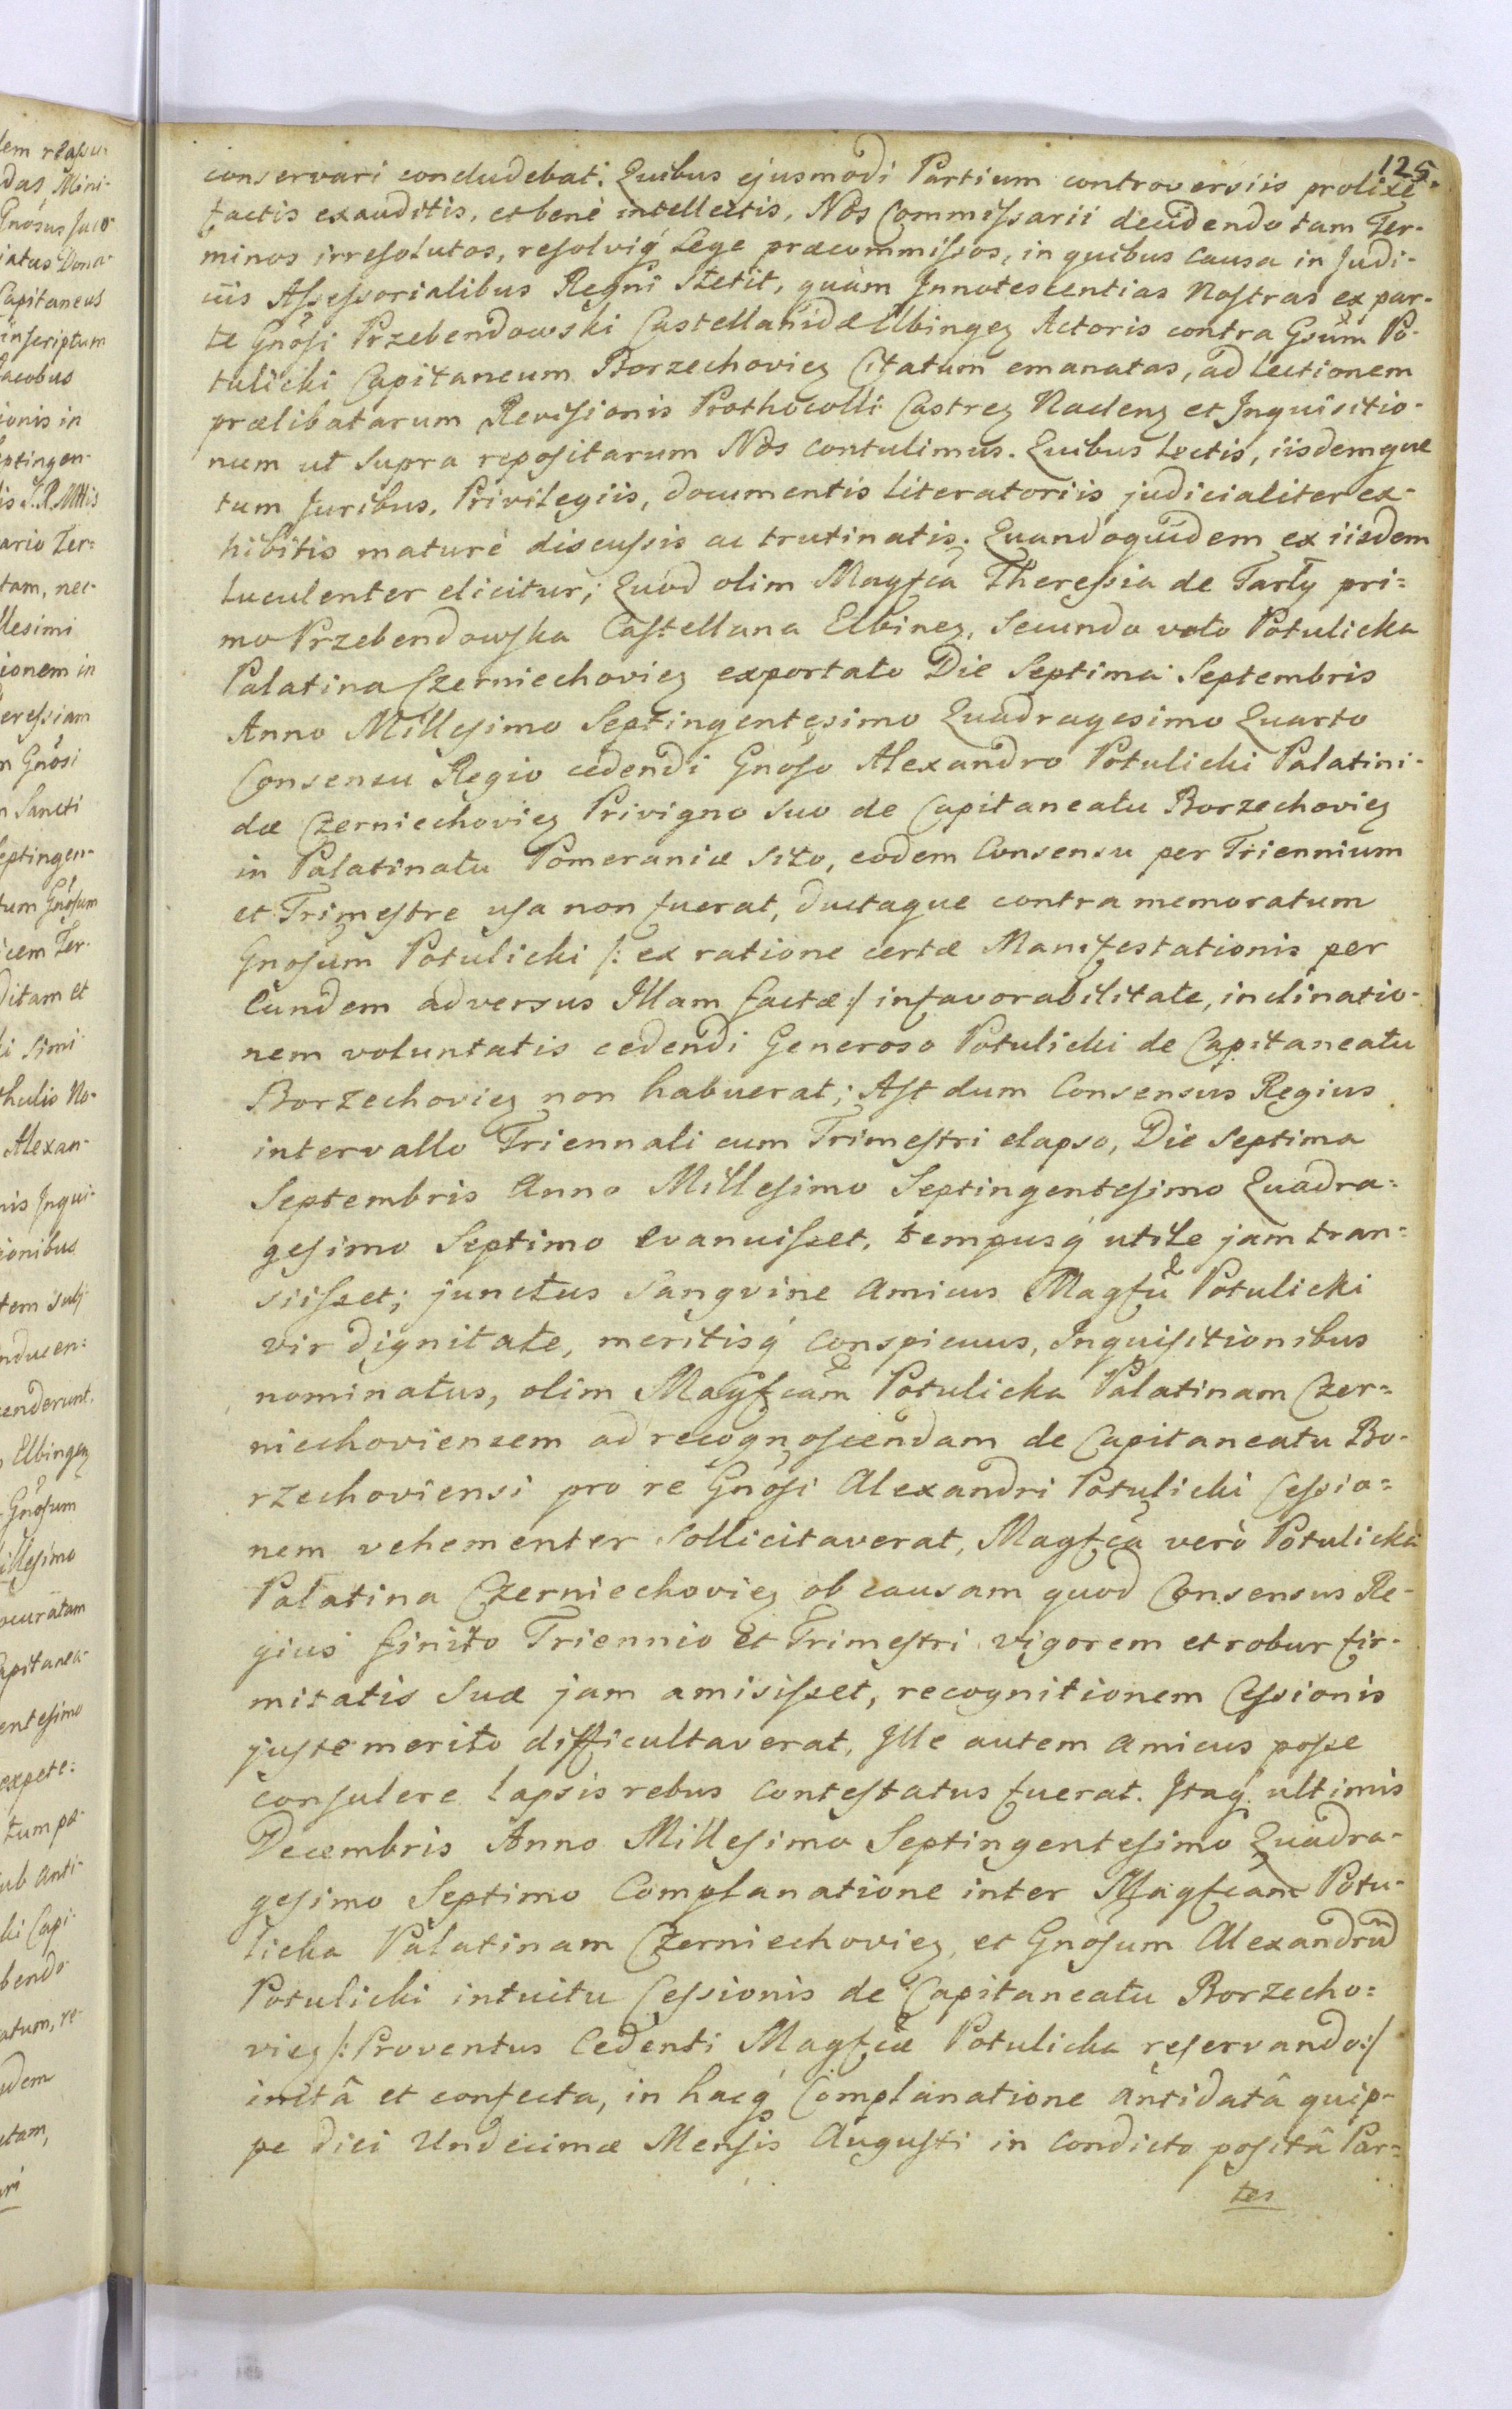 125.
conservari concludebat. Quibus ejusmodi Partium controversiis prolixè
factis exauditis, et benè intellectis, Nos Commissarii decidendo tam Ter-
minos irresolutos, resolviq́ Lege præcommissos, in quibus Causa in Judi-
ciis Assessorialibus Regni stetit, quàm Innotescentias Nostras ex par-
te Gnosi Przebendowski Castellanidæ Elbingeȝ Actoris contra Gsum Po-
tulicki Capitaneum Borzechovieȝ Citatum emanatas, ad Lectionem
prælibatarum Revisionis Prothocolli Castreȝ Nacleneȝ et Inquisitio-
num ut supra repositarum Nos contulimus. Quibus Lectis, iisdemque
tum Juribus, Privilegiis, documentis Literatoriis judicialiter ex-
hibitis maturè discussis ac trutinatis. Quandoquidem ex iisdem
Luculenter elicitur; Quod olim Magfca Theressia de Tarły pri=
mo Przebendowska Castellana Elbineȝ, Secundo voto Potulicka
Palatina Czerniechovieȝ exportato Die Septima Septembris
Anno Millesimo Septingentesimo Quadragesimo Quarto
Consensu Regio cedendi Gnoso Alexandro Potulicki Palatini-
dæ Czerniechovieȝ Privigno suo de Capitaneatu Borzechovieȝ
in Palatinatu Pomeraniæ sito, eodem Consensu per Triennium
et Trimestre usa non fuerat, ductaque contra memoratum
Gnosum Potulicki /: ex ratione certæ Manifestationis per
Eundem adversus Illam factæ :/ infavorabilitate, inclinatio-
nem voluntatis cedendi Generoso Potulicki de Capitaneatu
Borzechovieȝ non habuerat; Ast dum Consensus Regius
intervallo Triennali cum Trimestri elapso, Die Septima
Septembris Anno Millesimo Septingentesimo Quadra=
gesimo Septimo evanuisset, tempusq́ utile jam tran=
siisset; junctus sangvine Amicus Magfu Potulicki
vir dignitate, meritisq́ conspicuus, Inquisitionibus
nominatus, olim Magfcam Potulicka Palatinam Czer=
niechoviensem ad recognoscendam de Capitaneatu Bo-
rzechoviensi pro re Gnosi Alexandri Potulicki Cessio=
nem vehementer sollicitaverat, Magfca verò Potulicka
Palatina Czerniechovieȝ ob causam quod Consensus Re-
gius finito Triennio et Trimestri vigorem et robur fir-
mitatis suæ jam amisisset, recognitionem Cessionis
juste merito difficultaverat, Ille autem Amicus posse
consulere lapsis rebus contestatus fuerat. Itaq́ ultimis
Decembris Anno Millesimo Septingentesimo Quadra-
gesimo Septimo Complanatione inter Magfcam Potu-
licka Palatinam Czerniechovieȝ, et Gnosum Alexandrũ
Potulicki intuitu Cessionis de Capitaneatu Borzecho=
vieȝ /: Proventus Cedenti Magfcæ Potulicka reservando :/
initâ et confecta, in hacq́ Complanatione antidatâ quip-
pe diei Undecimæ Mensis Augusti in condicto positâ Par=
tes